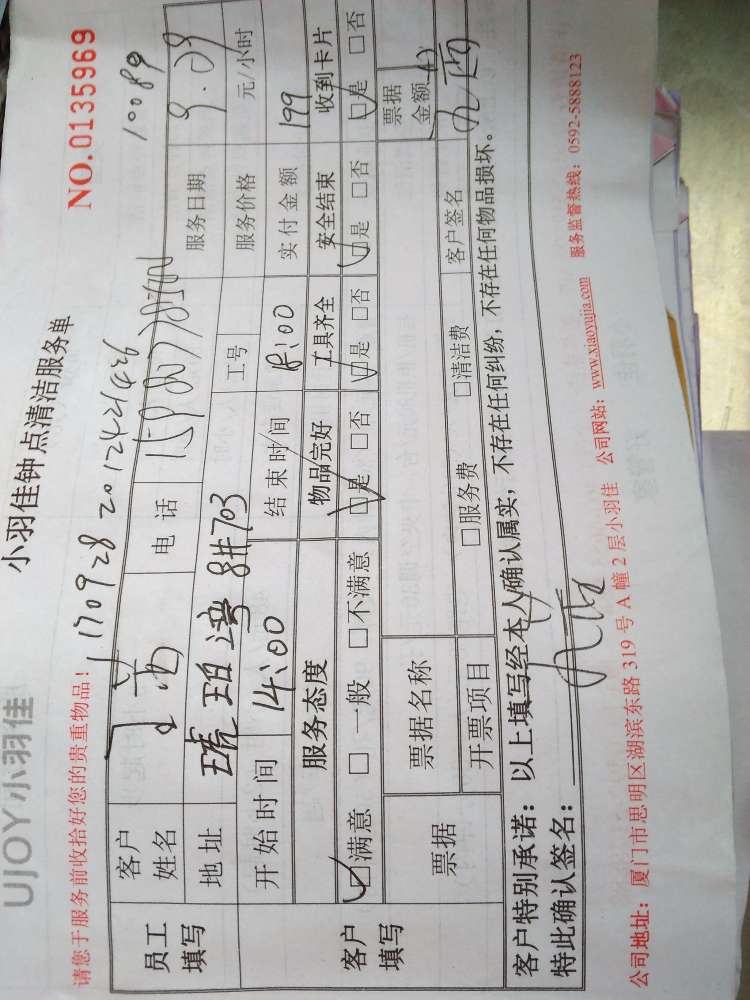 UJOY小羽佳
小羽佳钟点清洁服务单
NO.0135969
请您于服务前收拾好您的贵重物品！
170928 2012421426
10089
员工填写
客户姓名
电话
服务日期 9.29
地址 琥珀湾 8#703
工号
服务价格 元/小时
客户填写
开始时间 14:00
结束时间 18:00
实付金额 199
服务态度
物品完好
工具齐全
安全结束
收到卡片
☑满意 □一般 □不满意
☑是 □否
☑是 □否
☑是 □否
☑是 □否
票据
票据名称
票据金额
开票项目
□服务费 □清洁费
客户签名
客户特别承诺：以上填写经本人确认属实，不存在任何纠纷，不存在任何物品损坏。
特此确认签名：
公司地址：厦门市思明区湖滨东路 319 号 A 幢 2 层小羽佳 公司网站：www.xiaoyujia.com 服务监督热线：0592-5888123